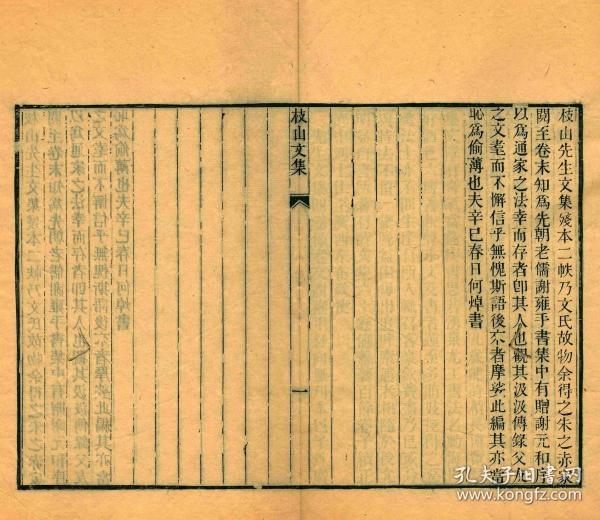 枝山先生文集殘本二帙乃文氏故物余得之朱之赤家
闕至卷末知爲先朝老儒謝雍手書集中有贈謝元和序
以爲通家之法幸而存者卽其人也觀其汲汲傳錄父
之文耄而不懈信乎無愧斯語後不者摩挲此編其亦當
恥爲偷薄也夫辛巳春日何焯書
枝山文集
一
孔夫子旧书网
www.kongfz.com